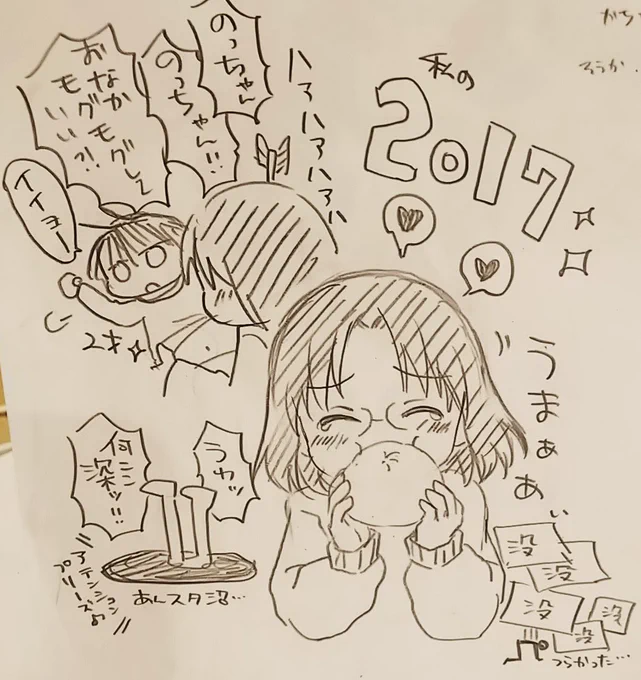 私の
2017
のっちゃん
のっちゃん!!
おなか
モグモグして
いい?!
イイヨー
ハァハァハァハァハァハァ
2才
うまぁぁぁぁ
うわッ
何ココ
深ッ!!
アテンション
プリーズ♪
あんスタ沼…
没
没
没
没
没
つらかった…
そうか.